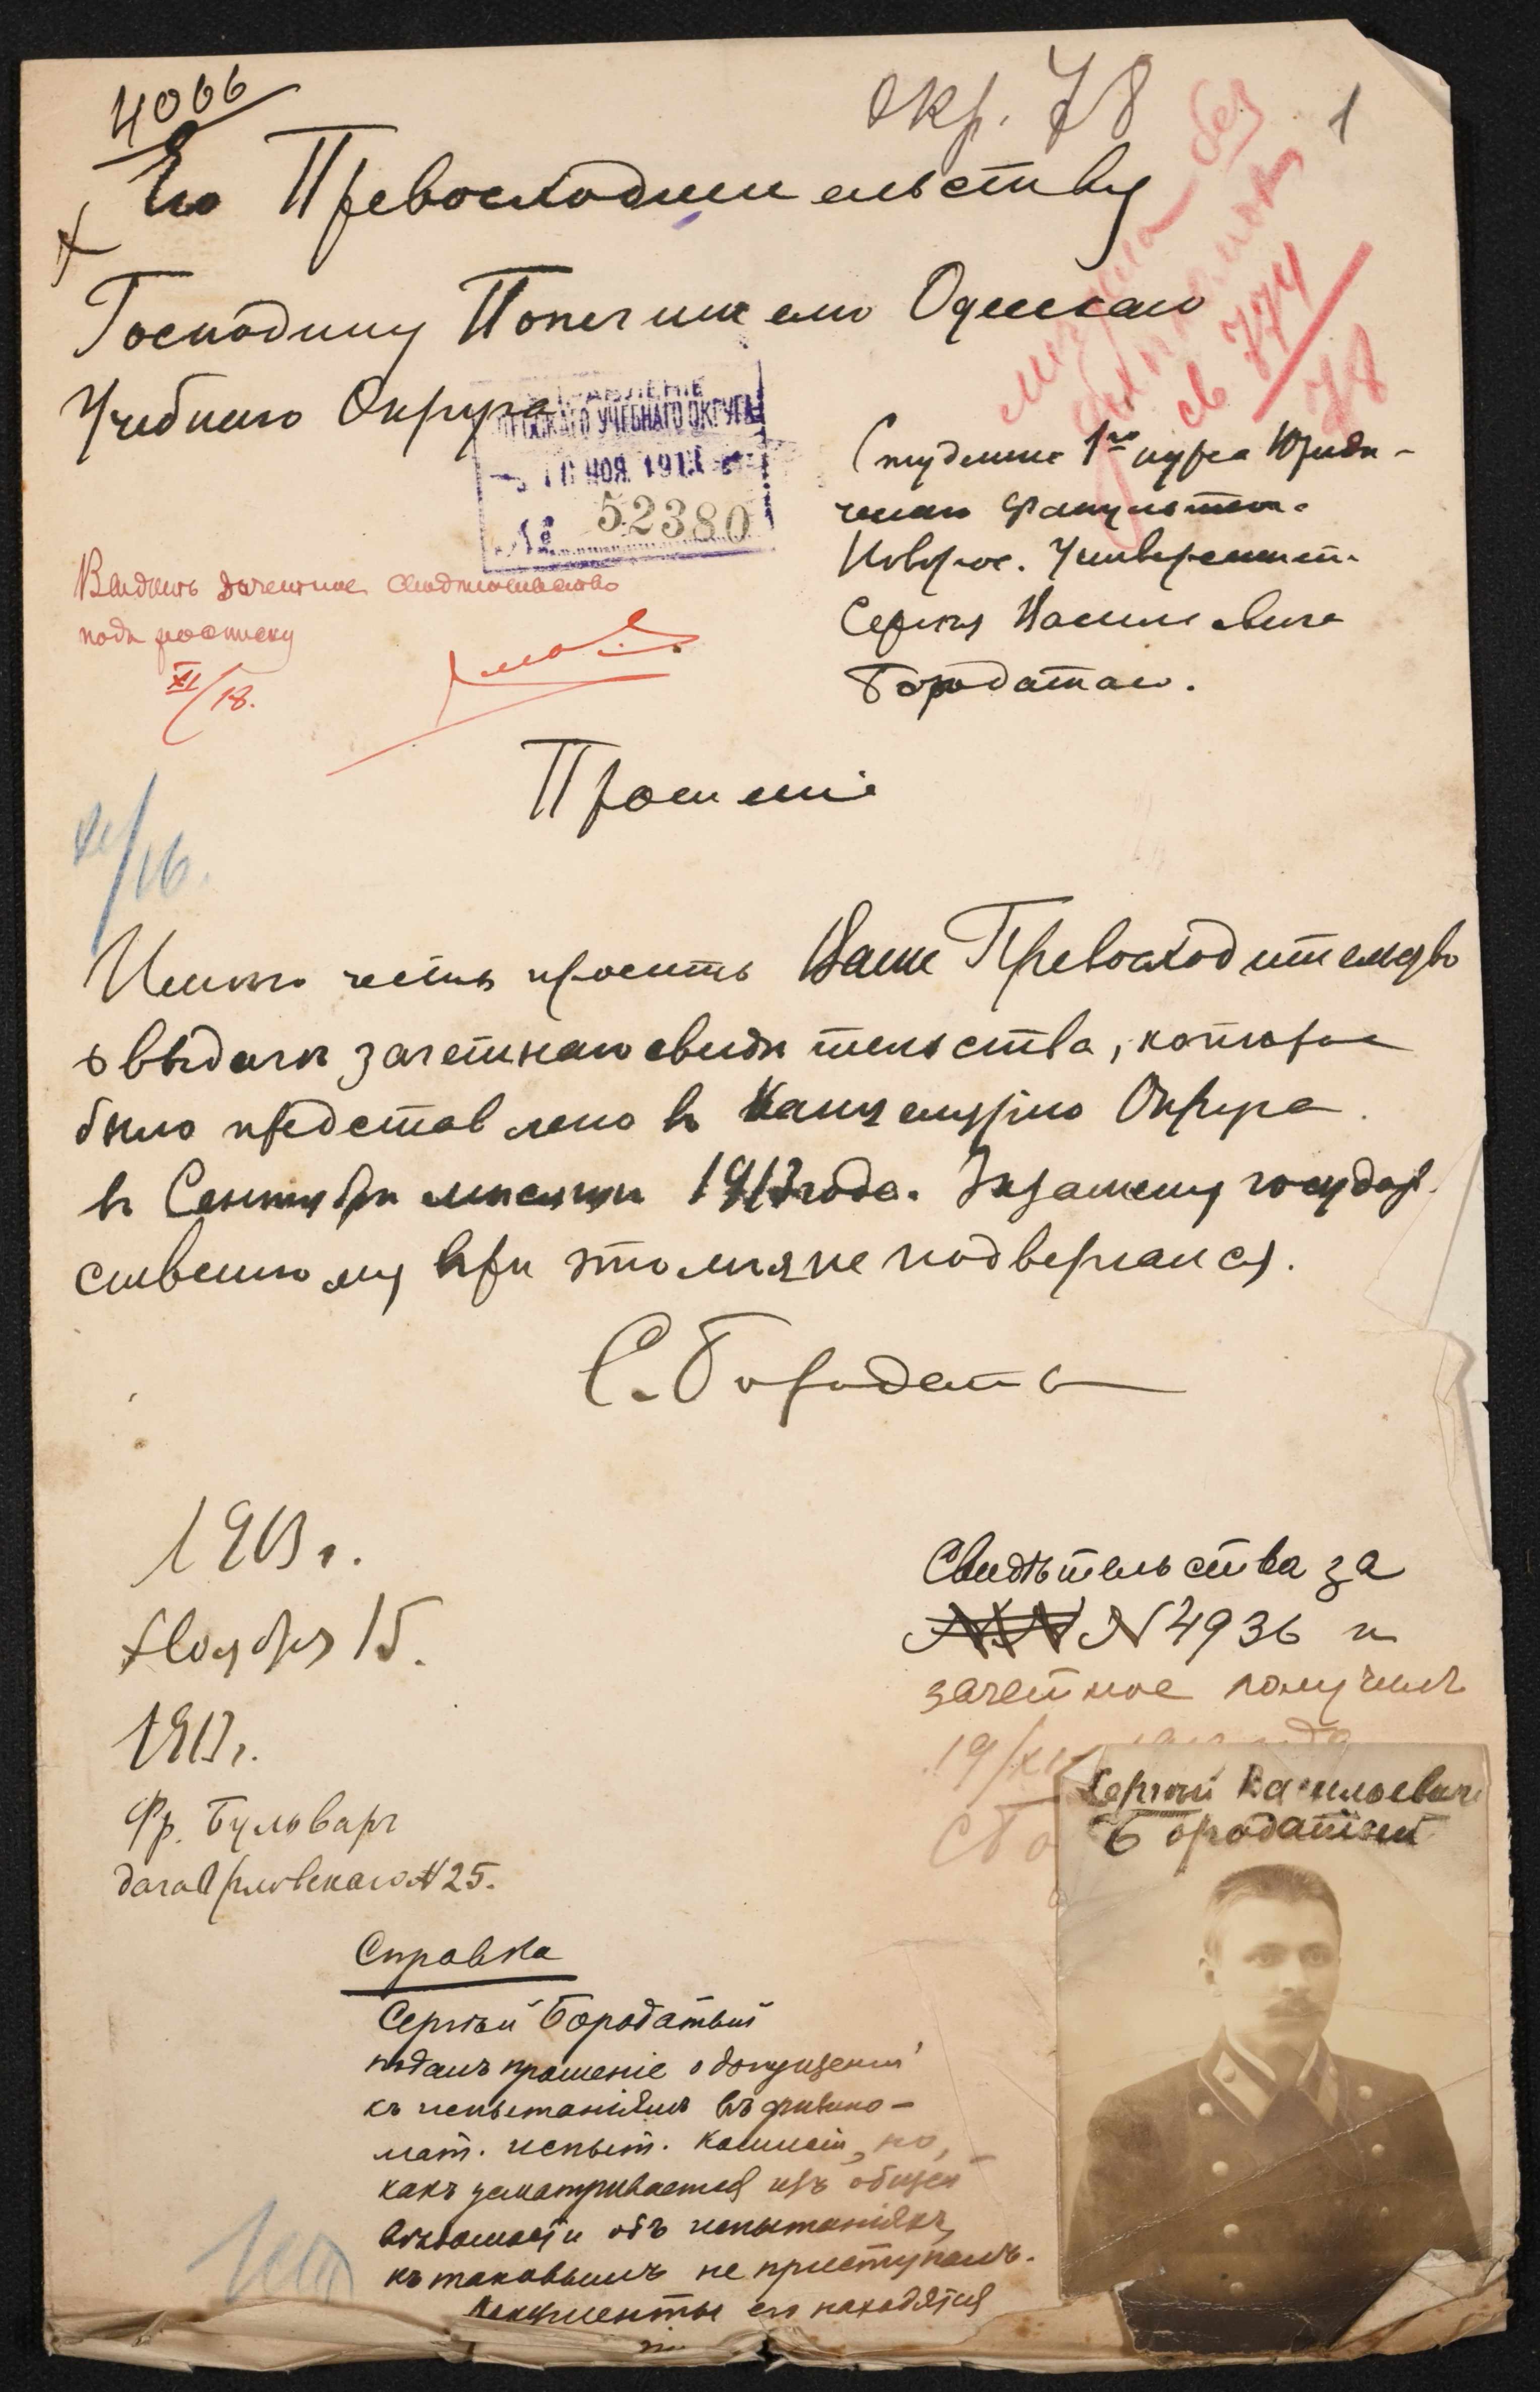 4066
окр. 78
1
Его Превосходительству
Господину Попечителю Одесскаго
Учебнаго Округа
УПРАВЛЕНІЕ
ОДЕССКАГО УЧЕБНАГО ОКРУГА
НОЯ 191
№ 52380
без
св 774
78
Студента 1го курса Юриди-
ческаго Факультета
Новорос. Университ.
Сергѣя Васильевича
Бородатаго.
Выдать зачетное свидѣтельство
подъ росписку
XI/18.
Прошеніе
XI/16.
Имѣю честь просить Ваше Превосходительство
о выдачѣ зачетнаго свидѣтельства, которое
было представлено въ Канцелярію Округа
въ Сентябрѣ мѣсяцѣ 1913 года. Экзамену государ-
ственному при этомъ я не подвергался.
С. Бородатый
1913 г.
Ноября 15.
1913 г.
Фр. Бульваръ
дача № 25.
Свидѣтельства за
№ 4936 и
зачетное получилъ
19/XI
С Бо
Сергѣй Васильевичъ
Бородатый
Справка
Сергѣй Бородатый
подалъ прошеніе о допущеніи
къ испытаніямъ въ физико-
мат. испыт. комиссіи, но,
какъ усматривается изъ общей
вѣдомости объ испытаніяхъ,
къ таковымъ не приступалъ.
Документы его находятся